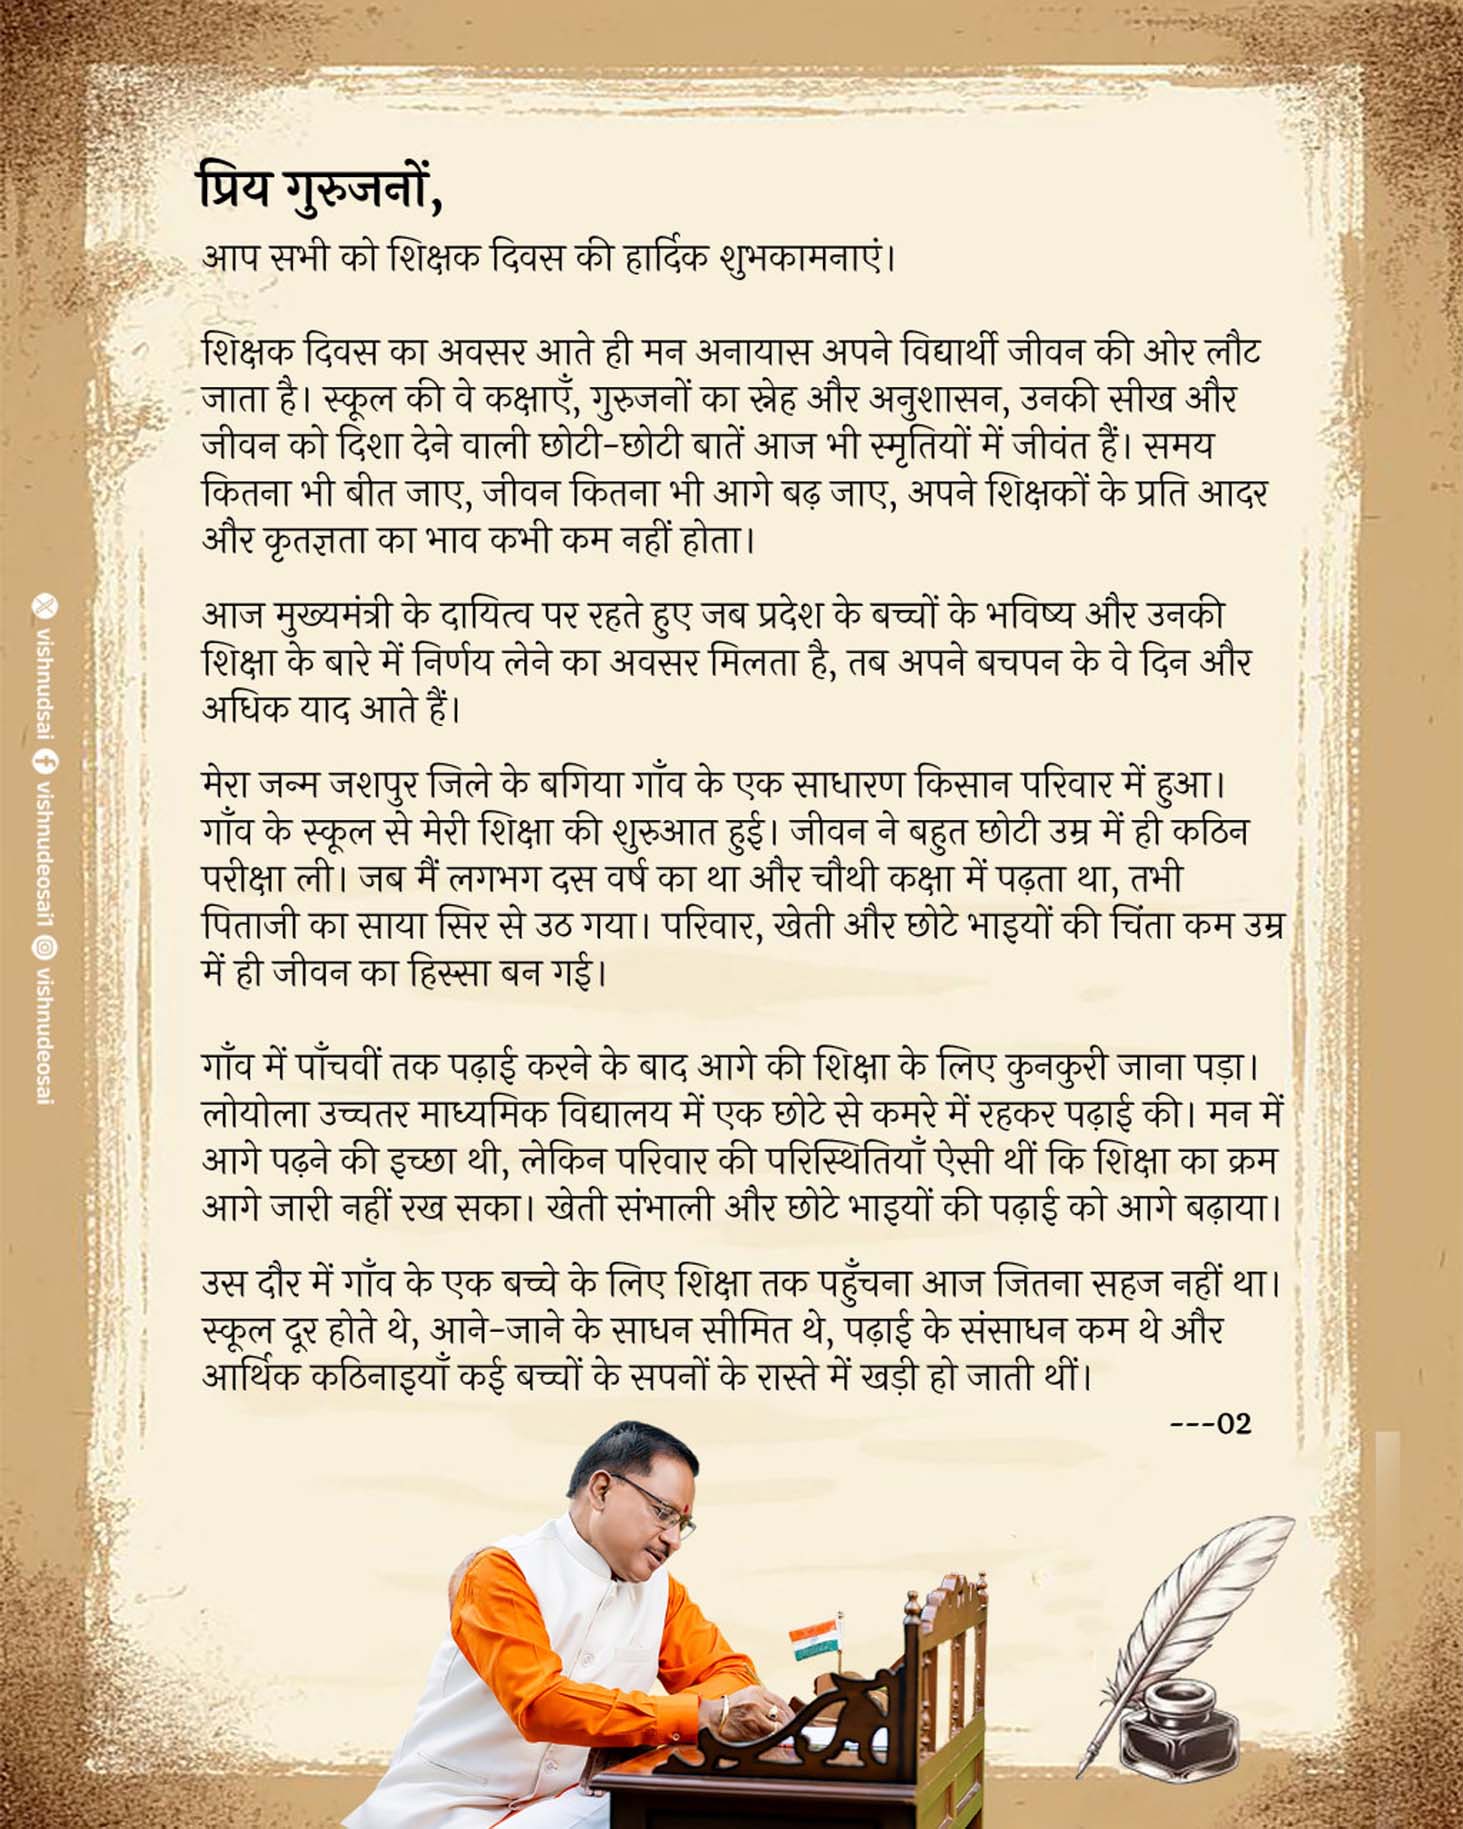 प्रिय गुरुजनों,
आप सभी को शिक्षक दिवस की हार्दिक शुभकामनाएं।
शिक्षक दिवस का अवसर आते ही मन अनायास अपने विद्यार्थी जीवन की ओर लौट
जाता है। स्कूल की वे कक्षाएँ, गुरुजनों का स्नेह और अनुशासन, उनकी सीख और
जीवन को दिशा देने वाली छोटी-छोटी बातें आज भी स्मृतियों में जीवंत हैं। समय
कितना भी बीत जाए, जीवन कितना भी आगे बढ़ जाए, अपने शिक्षकों के प्रति आदर
और कृतज्ञता का भाव कभी कम नहीं होता।
आज मुख्यमंत्री के दायित्व पर रहते हुए जब प्रदेश के बच्चों के भविष्य और उनकी
शिक्षा के बारे में निर्णय लेने का अवसर मिलता है, तब अपने बचपन के वे दिन और
अधिक याद आते हैं।
मेरा जन्म जशपुर जिले के बगिया गाँव के एक साधारण किसान परिवार में हुआ।
गाँव के स्कूल से मेरी शिक्षा की शुरुआत हुई। जीवन ने बहुत छोटी उम्र में ही कठिन
परीक्षा ली। जब मैं लगभग दस वर्ष का था और चौथी कक्षा में पढ़ता था, तभी
पिताजी का साया सिर से उठ गया। परिवार, खेती और छोटे भाइयों की चिंता कम उम्र
में ही जीवन का हिस्सा बन गई।
गाँव में पाँचवीं तक पढ़ाई करने के बाद आगे की शिक्षा के लिए कुनकुरी जाना पड़ा।
लोयोला उच्चतर माध्यमिक विद्यालय में एक छोटे से कमरे में रहकर पढ़ाई की। मन में
आगे पढ़ने की इच्छा थी, लेकिन परिवार की परिस्थितियाँ ऐसी थीं कि शिक्षा का क्रम
आगे जारी नहीं रख सका। खेती संभाली और छोटे भाइयों की पढ़ाई को आगे बढ़ाया।
उस दौर में गाँव के एक बच्चे के लिए शिक्षा तक पहुँचना आज जितना सहज नहीं था।
स्कूल दूर होते थे, आने-जाने के साधन सीमित थे, पढ़ाई के संसाधन कम थे और
आर्थिक कठिनाइयाँ कई बच्चों के सपनों के रास्ते में खड़ी हो जाती थीं।
---02
vishnudsai vishnudeosai1 vishnudeosai